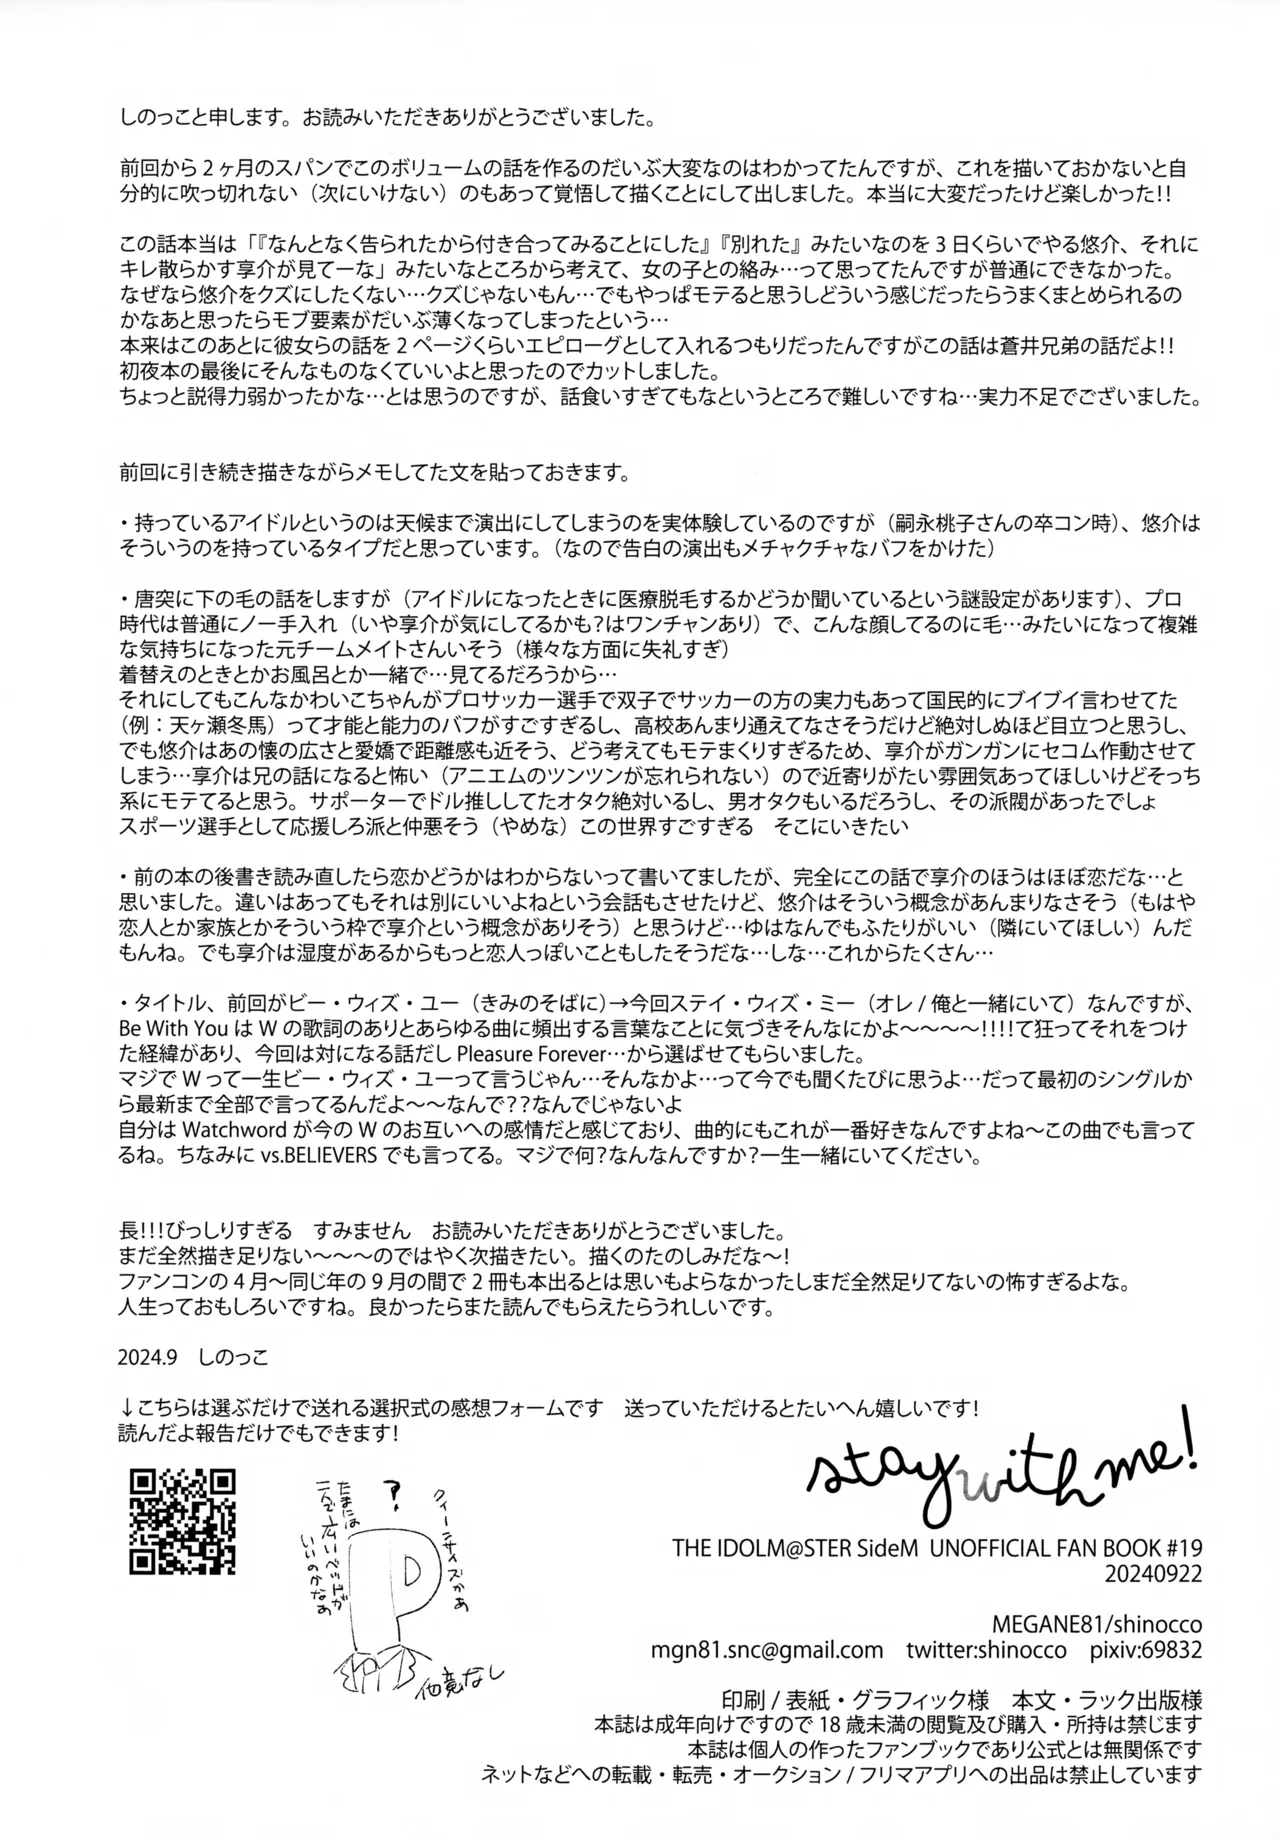 しのっこと申します。お読みいただきありがとうございました。
前回から2ヶ月のスパンでこのボリュームの話を作るのだいぶ大変なのはわかってたんですが、これを描いておかないと自
分的に吹っ切れない（次にいけない）のもあって覚悟して描くことにして出しました。本当に大変だったけど楽しかった!!
この話本当は「『なんとなく告られたから付き合ってみることにした』『別れた』みたいなのを3日くらいでやる悠介、それに
キレ散らかす享介が見てーな」みたいなところから考えて、女の子との絡み…って思ってたんですが普通にできなかった。
なぜなら悠介をクズにしたくない…クズじゃないもん…でもやっぱモテると思うしどういう感じだったらうまくまとめられるの
かなあと思ったらモブ要素がだいぶ薄くなってしまったという…
本来はこのあとに彼女らの話を2ページくらいエピローグとして入れるつもりだったんですがこの話は蒼井兄弟の話だよ!!
初夜本の最後にそんなものなくていいよと思ったのでカットしました。
ちょっと説得力弱かったかな…とは思うのですが、話食いすぎてもなというところで難しいですね…実力不足でございました。
前回に引き続き描きながらメモしてた文を貼っておきます。
・持っているアイドルというのは天候まで演出にしてしまうのを実体験しているのですが（嗣永桃子さんの卒コン時）、悠介は
そういうのを持っているタイプだと思っています。（なので告白の演出もメチャクチャなバフをかけた）
・唐突に下の毛の話をしますが（アイドルになったときに医療脱毛するかどうか聞いているという謎設定があります）、プロ
時代は普通にノー手入れ（いや享介が気にしてるかも?はワンチャンあり）で、こんな顔してるのに毛…みたいになって複雑
な気持ちになった元チームメイトさんいそう（様々な方面に失礼すぎ）
着替えのときとかお風呂とか一緒で…見てるだろうから…
それにしてもこんなかわいこちゃんがプロサッカー選手で双子でサッカーの方の実力もあって国民的にブイブイ言わせてた
（例：天ヶ瀬冬馬）って才能と能力のバフがすごすぎるし、高校あんまり通えてなさそうだけど絶対しぬほど目立つと思うし、
でも悠介はあの懐の広さと愛嬌で距離感も近そう、どう考えてもモテまくりすぎるため、享介がガンガンにセコム作動させて
しまう…享介は兄の話になると怖い（アニエムのツンツンが忘れられない）ので近寄りがたい雰囲気あってほしいけどそっち
系にモテてると思う。サポーターでドル推ししてたオタク絶対いるし、男オタクもいるだろうし、その派閥があったでしょ
スポーツ選手として応援しろ派と仲悪そう（やめな）この世界すごすぎる　そこにいきたい
・前の本の後書き読み直したら恋かどうかはわからないって書いてましたが、完全にこの話で享介のほうはほぼ恋だな…と
思いました。違いはあってもそれは別にいいよねという会話もさせたけど、悠介はそういう概念があんまりなさそう（もはや
恋人とか家族とかそういう枠で享介という概念がありそう）と思うけど…ゆはなんでもふたりがいい（隣にいてほしい）んだ
もんね。でも享介は湿度があるからもっと恋人っぽいこともしたそうだな…しな…これからたくさん…
・タイトル、前回がビー・ウィズ・ユー（きみのそばに）→今回ステイ・ウィズ・ミー（オレ/俺と一緒にいて）なんですが、
Be With YouはWの歌詞のありとあらゆる曲に頻出する言葉なことに気づきそんなにかよ～～～～!!!!て狂ってそれをつけ
た経緯があり、今回は対になる話だしPleasure Forever…から選ばせてもらいました。
マジでWって一生ビー・ウィズ・ユーって言うじゃん…そんなかよ…って今でも聞くたびに思うよ…だって最初のシングルか
ら最新まで全部で言ってるんだよ～～なんで??なんでじゃないよ
自分はWatchwordが今のWのお互いへの感情だと感じており、曲的にもこれが一番好きなんですよね～この曲でも言って
るね。ちなみにvs.BELIEVERSでも言ってる。マジで何?なんなんですか?一生一緒にいてください。
長!!!びっしりすぎる　すみません　お読みいただきありがとうございました。
まだ全然描き足りない～～～のではやく次描きたい。描くのたのしみだな～!
ファンコンの4月～同じ年の9月の間で2冊も本出るとは思いもよらなかったしまだ全然足りてないの怖すぎるよな。
人生っておもしろいですね。良かったらまた読んでもらえたらうれしいです。
2024.9　しのっこ
↓こちらは選ぶだけで送れる選択式の感想フォームです　送っていただけるとたいへん嬉しいです!
読んだよ報告だけでもできます!
クィーンサイズかあ
?
たまには
こんで広いベッドが
いいのかなあ
P
他意なし
stay with me!
THE IDOLM@STER SideM UNOFFICIAL FAN BOOK #19
20240922
MEGANE81/shinocco
mgn81.snc@gmail.com twitter:shinocco pixiv:69832
印刷/表紙・グラフィック様　本文・ラック出版様
本誌は成年向けですので18歳未満の閲覧及び購入・所持は禁じます
本誌は個人の作ったファンブックであり公式とは無関係です
ネットなどへの転載・転売・オークション/フリマアプリへの出品は禁止しています